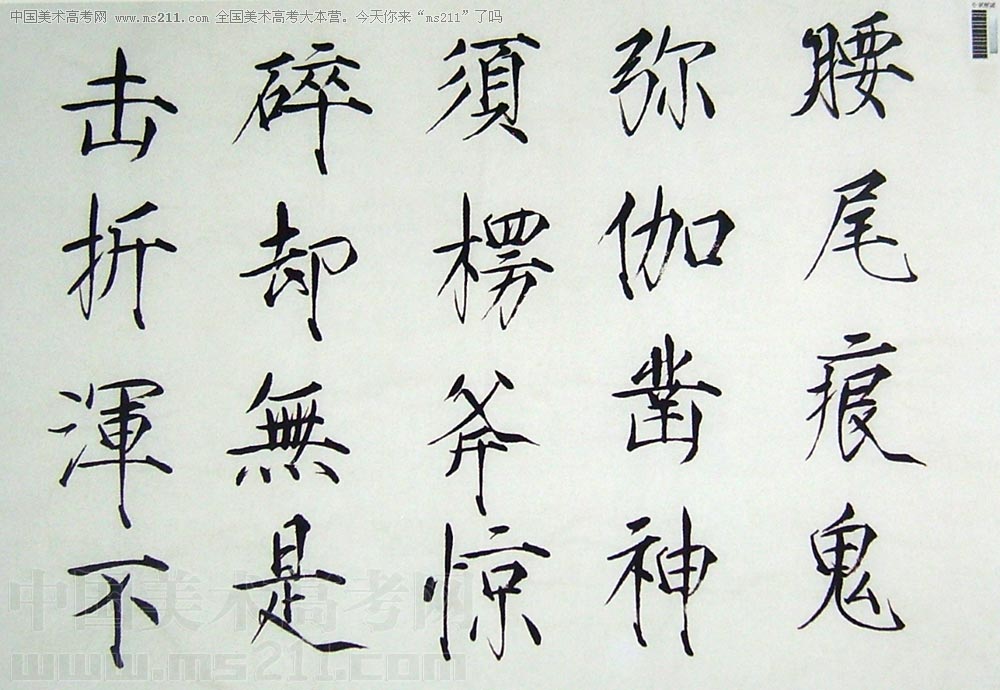 中国美术高考网 www.ms211.com 全国美术高考大本营。今天你来“ms211”了吗
击碎須弥腰
折却楞伽尾
渾無斧凿痕
不是惊神鬼
中国美术高考网
www.ms211.com